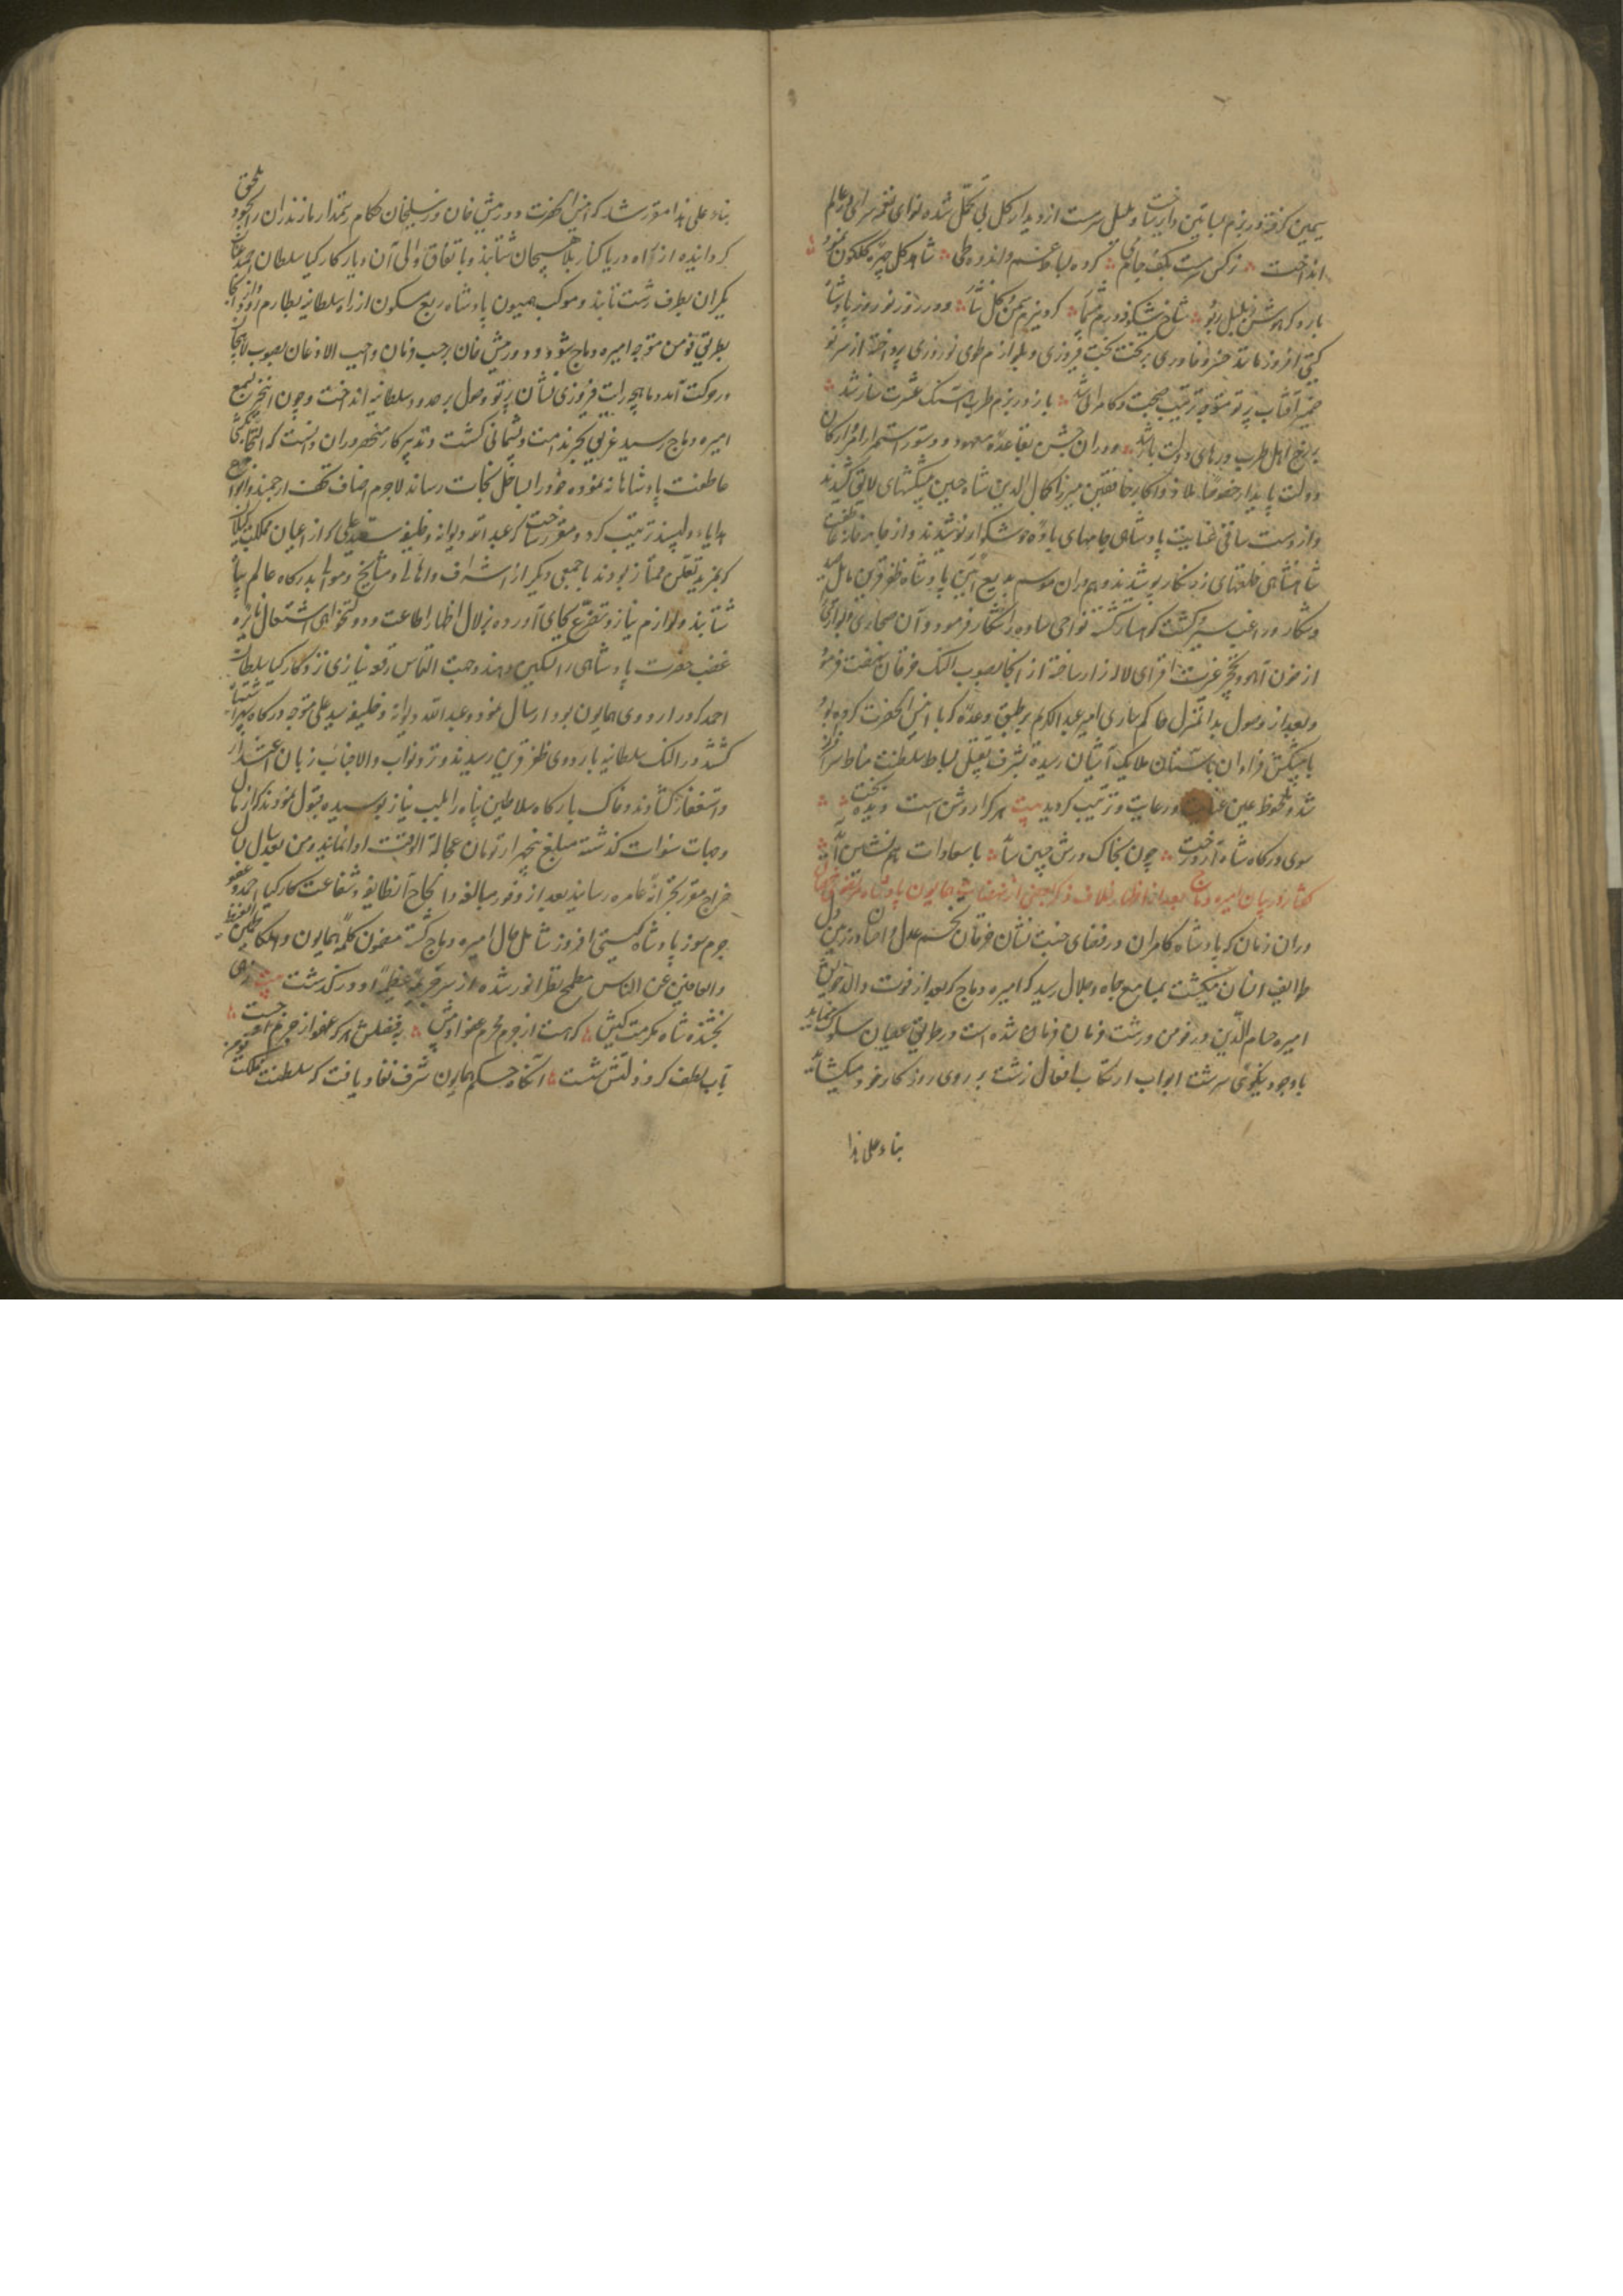 یمین کرفته در بزم بساتین دایر ساخت و بلبل سرمست از دیدار کل بی تحمل شده نوای نغمه سرای در عالم
انداخت نرکس سرمست بکف جام می کرده بساط غم و اندوه طی شاهد کل چهره کلکون نمود
باز دکر هوش ز بلبل ربود شاخ شکوفه درم کرد بزم چمن کل و در روز نوروز پادشاه
کیتی افروز مانند خسرو خاوری بر تخت بخت فیروزی و بلوازم طوی نوروزی پرداخته از سر نو
ضمیر آفتاب پرتو متوجه ترتیب صحبت و کامرانی شد باز در بزم طرب آهنک عشرت ساز شد
بر رخ اهل طرب درهای دولت باز شد و در آن جشن بقاعده معهود و دستور استمرار امرا و ارکان
دولت پایدار خصوصا ملاذ اکابر خافقین میرزا کمال الدین شاه حسین پیشکشهای لایق کشیدند
و از دست ساقی عنایت پادشاهی جامهای باده خوشکوار نوشیدند و از جامه خانه عاطفت
شاهنشاهی خلعتهای زرنکار پوشیدند و هم در آن موسم بدیع آئین پادشاه ظفر قرین مایل صید
و شکار و راغب سیر و کشت کوهسار کشته نواحی ساوه را شکار فرمود و آن صحاری و براری را
از خون آهو و نخچیر غیرت افزای لاله زار ساخته از آنجا بصوب النک خرقان نهضت فرمود
و بعد از وصول بدانمنزل حاکم ساری امیر عبد الکریم بر طبق وعده که با انیس الحضرت کرده بود
با پیشکش فراوان باستان ملایک آشیان رسیده بشرف تقبیل بساط سلطنت مناط سرافراز
شد و ملحوظ عین عنایت و رعایت و تربیت کردید بیت هر کرا روشن است دیده بخت
سوی درکاه شاه آرد رخت چون بخاک درش جبین ساید با سعادات همنشین آید
کفتار در بیان امیره دباج بعد از اظهار خلاف و ذکر بعضی از قضایای همایون پادشاه
در آن زمان که پادشاه کامران در فضای جنت نشان خرقان تخم عدل و احسان در زمین دل
طوایف انسان میکشت بمسامع جاه و جلال رسید که امیره دباج که بعد از فوت والد خویش
امیره حسام الدین در فومن و رشت فرمان فرمان شده است در طریق عصیان سلوک مینماید
با وجود نیکوئی سرشت ابواب ارتکاب افعال زشت بر روی روزکار خود میکشاید
بناء علی هذا
بناء علی هذا مقرر شد که انیس الحضرت دورمیش خان و زینلخان حکام رستمدار و مازندران را بخود ملحق
کردانیده از راه دریا کنار بلاهیجان شتابند و باتفاق والی آن دیار کارکیا سلطان احمد عنان
یکران بطرف رشت تابند و موکب همیون پادشاه ربع مسکون از راه سلطانیه بطارم رود و از آنجا
بطریق فومن متوجه امیره دباج شود و دورمیش خان بر حسب فرمان واجب الاذعان بصوب لاهیجان
در حرکت آمد و ماهچه رایت فیروزی نشان پرتو وصول بر حدود سلطانیه انداخت و چون این خبر بسمع
امیره دباج رسید غریق بحر ندامت و پشیمانی کشت و تدبیر کار منحصر در آن دانست که التجا بکشتی
عاطفت پادشاهانه نموده خود را بساحل نجات رساند لاجرم اصناف تحف ارجمند و انواع
هدایاء دلپسند ترتیب کرد و مقرر ساخت که عبد الله دیوانه و خلیفه سید علی که از اعیان مملکت کیلان
بمزید تعین ممتاز بودند با جمعی دیکر از اشراف و اهالی و مشایخ و موالی بدرکاه عالم پناه
شتابند و لوازم نیاز و تضرع بجای آورده بزلال اظهار اطاعت و دولتخواهی اشتعال نایره
غضب حضرت پادشاهی را تسکین دهند و جهت التماس رقعه نیازی نزد کارکیا سلطان
احمد که در اردوی همایون بود ارسال نمود و عبد الله دیوانه و خلیفه سید علی متوجه درکاه سپهر اشتباه
کشته در النک سلطانیه باردوی ظفر قرین رسیدند و نزد نواب والا جناب زبان اعتذار
و استغفار کشادند و خاک بارکاه سلاطین پناه را بلب نیاز بوسیده قبول نمودند که از مال
و جهات سنوات کذشته مبلغ پنجهزار تومان عجالة الوقت ادا نمایند و من بعد سال بسال
خراج مقرر بخزانه عامره رسانید بعد از وفور مبالغه و الحاح آنطایفه و شفاعت کارکیا احمد عفو
جرم سوز پادشاه کیتی افروز شامل حال امیره دباج کشته مضمون کلمه همایون و الکاظمین الغیظ
و العافین عن الناس مطمح نظر انور شده از سر جریمه عظیمه او در کذشت بیت زهی
بخشنده شاه مکرمت کیش که هست از جرم مجرم عفو او بیش
بآب لطف کرد از دلش شست آنکاه حکم همایون شرف نفاذ یافت که سلطنت مملکت